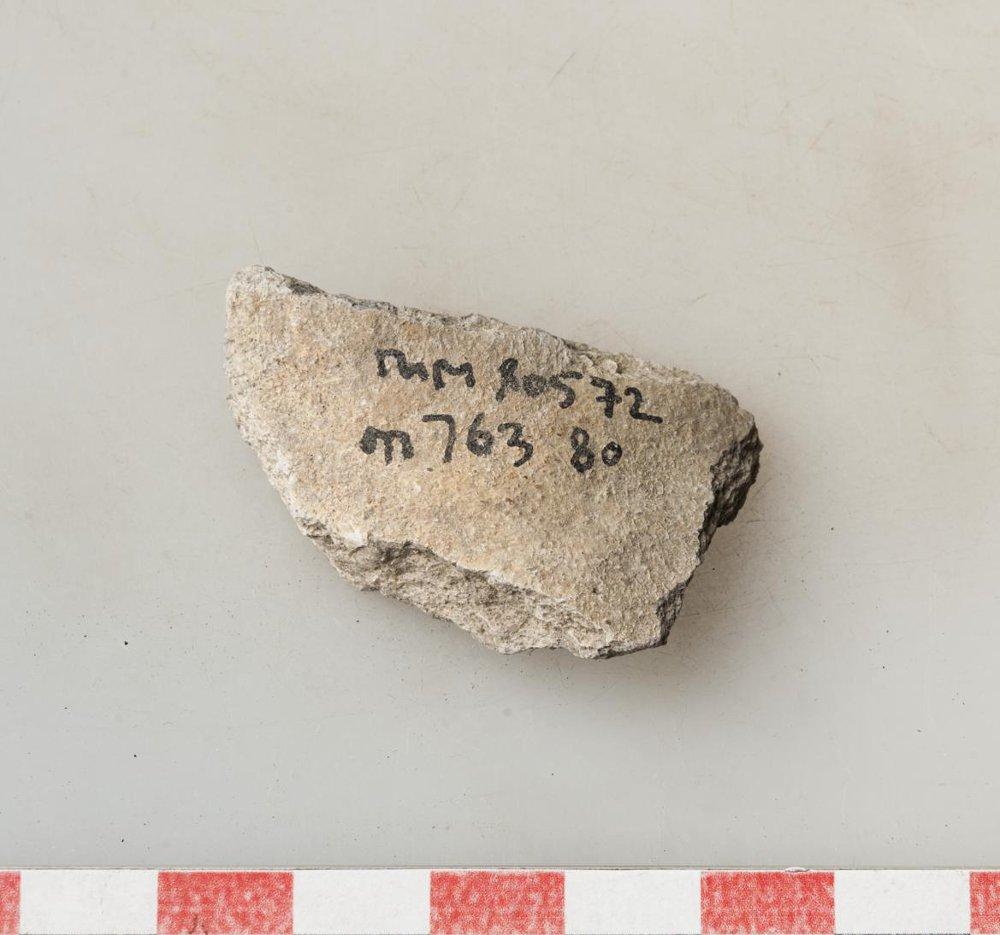 MMM 80572
M 763 80